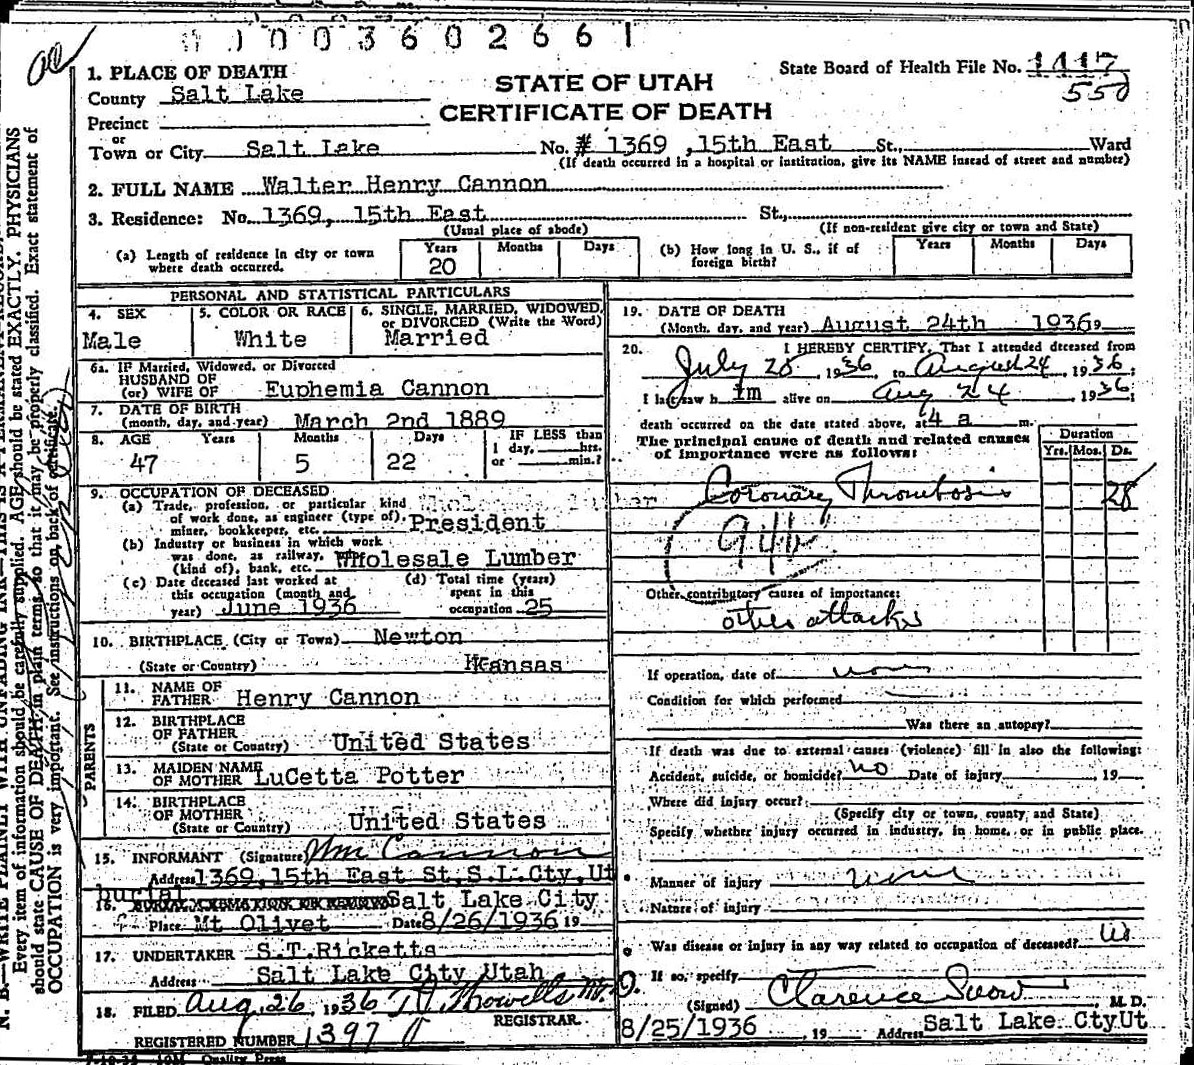 0003602661
1. PLACE OF DEATH
County Salt Lake
Precinct
or
Town or City Salt Lake No. # 1369 ,15th East St., Ward
(If death occurred in a hospital or institution, give its NAME instead of street and number)
STATE OF UTAH
CERTIFICATE OF DEATH
State Board of Health File No. 1417
550
2. FULL NAME Walter Henry Cannon
3. Residence: No. 1369, 15th East St.,
(Usual place of abode) (If non-resident give city or town and State)
(a) Length of residence in city or town
where death occurred. Years Months Days
20
(b) How long in U. S., if of
foreign birth? Years Months Days
PERSONAL AND STATISTICAL PARTICULARS
4. SEX
Male
5. COLOR OR RACE
White
6. SINGLE, MARRIED, WIDOWED,
or DIVORCED (Write the Word)
Married
6a. IF Married, Widowed, or Divorced
HUSBAND OF
(or) WIFE OF Euphemia Cannon
7. DATE OF BIRTH
(month, day, and year) March 2nd 1889
8. AGE Years Months Days IF LESS than
1 day, hrs.
or min.?
47 5 22
9. OCCUPATION OF DECEASED
(a) Trade, profession, or particular kind
of work done, as engineer (type of),
miner, bookkeeper, etc. President
(b) Industry or business in which work
was done, as railway,
(kind of), bank, etc. Wholesale Lumber
(c) Date deceased last worked at
this occupation (month and
year) June 1936
(d) Total time (years)
spent in this
occupation 25
10. BIRTHPLACE (City or Town) Newton
(State or Country) Kansas
PARENTS
11. NAME OF
FATHER Henry Cannon
12. BIRTHPLACE
OF FATHER
(State or Country) United States
13. MAIDEN NAME
OF MOTHER LuCetta Potter
14. BIRTHPLACE
OF MOTHER
(State or Country) United States
15. INFORMANT (Signature) Wm Cannon
Address 1369,15th East St,S.L.Cty,Ut
burial
16. BURIAL CREMATION OR REMOVAL Salt Lake City
Place Mt Olivet Date 8/26/1936 19
17. UNDERTAKER S.T.Ricketts
Address Salt Lake City Utah
18. FILED Aug 26, 1936
REGISTRAR.
REGISTERED NUMBER 1397
19. DATE OF DEATH
(Month, day, and year) August 24th 1936
20. I HEREBY CERTIFY, That I attended deceased from
July 28, 1936 to August 24, 1936;
I last saw h im alive on Aug 24, 1936;
death occurred on the date stated above, at 4 a m.
The principal cause of death and related causes
of importance were as follows:
Duration
Yrs. Mos. Ds.
Coronary Thrombosis 28
94b
Other contributory causes of importance:
other attacks
If operation, date of none
Condition for which performed
Was there an autopsy?
If death was due to external causes (violence) fill in also the following:
Accident, suicide, or homicide? no Date of injury , 19
Where did injury occur?
(Specify city or town, county, and State)
Specify whether injury occurred in industry, in home, or in public place.
Manner of injury none
Nature of injury
Was disease or injury in any way related to occupation of deceased?
If so, specify
(Signed) Clarence Snow, M. D.
8/25/1936 , 19 Address Salt Lake Cty Ut
N. B.—WRITE PLAINLY WITH UNFADING INK—THIS IS A PERMANENT RECORD.
Every item of information should be carefully supplied. AGE should be stated EXACTLY. PHYSICIANS
should state CAUSE OF DEATH in plain terms, so that it may be properly classified. Exact statement of
OCCUPATION is very important. See instructions on back of certificate.
Quality Press